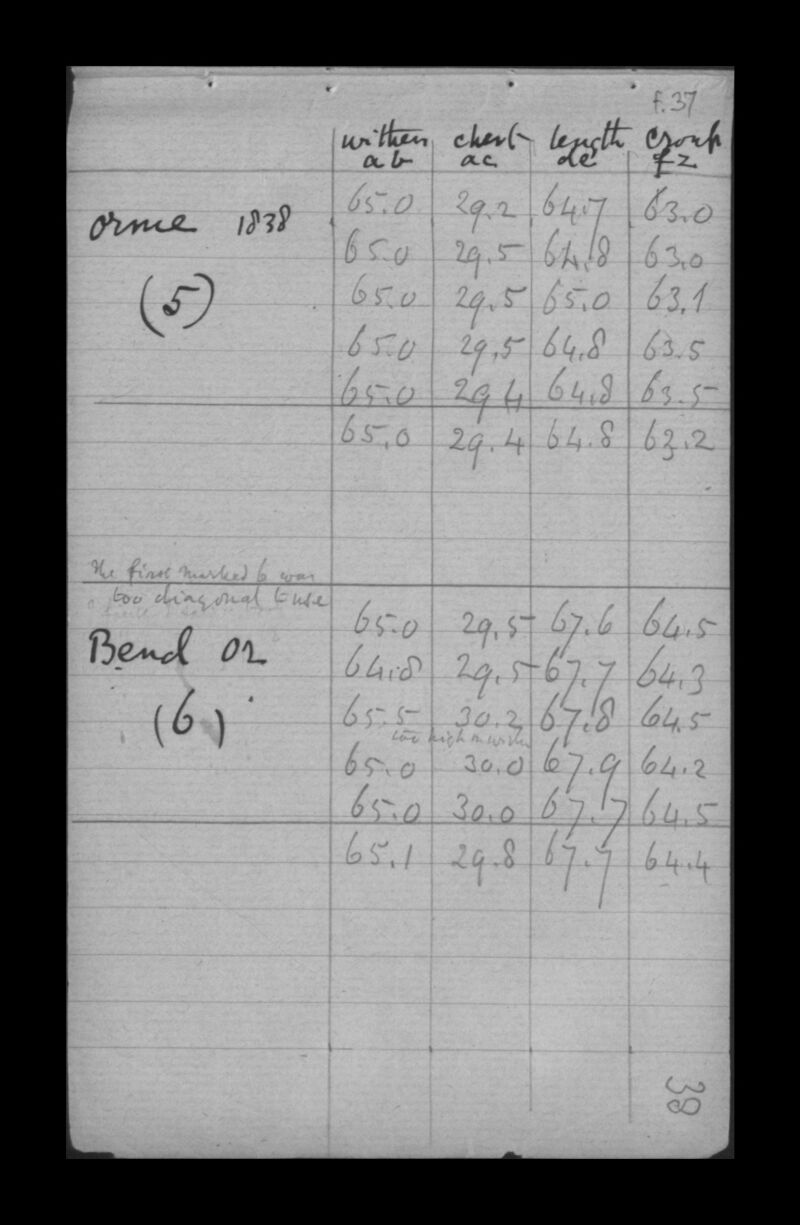 f.37
withers chest length croup
ab ac de fz
65.0 29.2 64.7 63.0
Orme 1838
65.0 29.5 64.8 63.0
(5) 65.0 29.5 65.0 63.1
65.0 29.5 64.8 63.5
65.0 29.4 64.8 63.5
65.0 29.4 64.8 63.2
The first marked 6 was
too diagonal to use
65.0 29.5 67.6 64.5
Bend Or
64.8 29.5 67.7 64.3
(6) 65.5 30.2 67.8 64.5
too high in withers
65.0 30.0 67.9 64.2
65.0 30.0 67.7 64.5
65.1 29.8 67.7 64.4
38